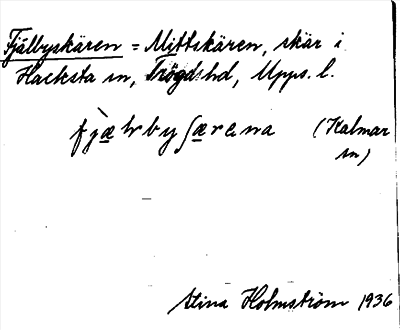 Fjälbyskären = Mittskären, skär i
Hacksta sn, Trögds hd, Upps. l.
fjæ̀lrbyʃærɛna (Kalmar
sn)
Stina Holmström 1936